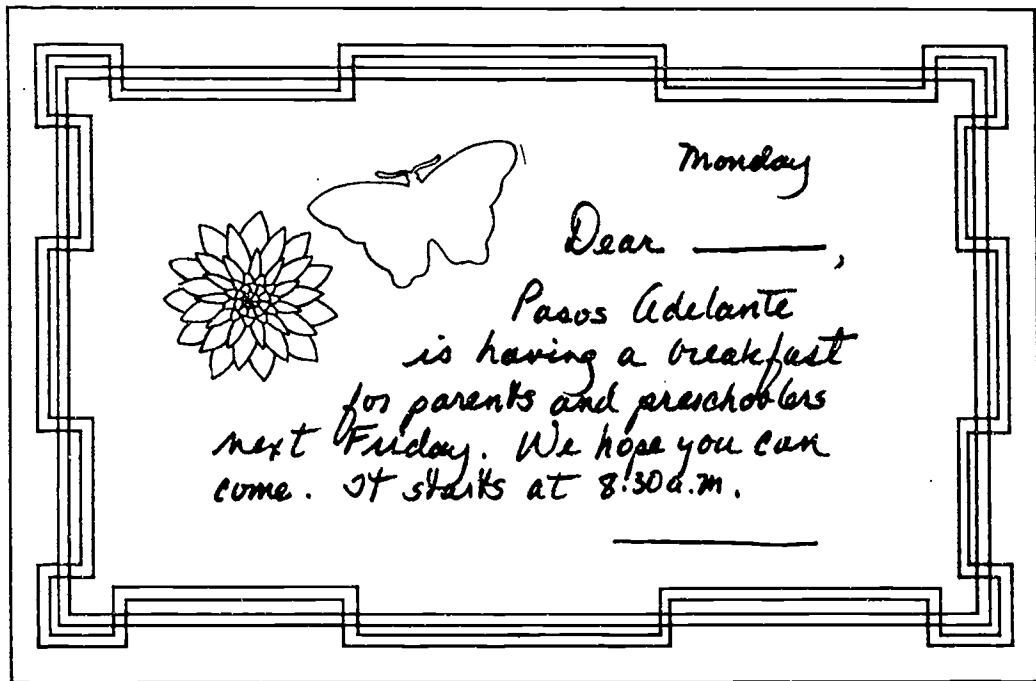 Monday
Dear ______,
Pasos Adelante
is having a breakfast
for parents and preschoolers
next Friday. We hope you can
come. It starts at 8:30 a.m.
______